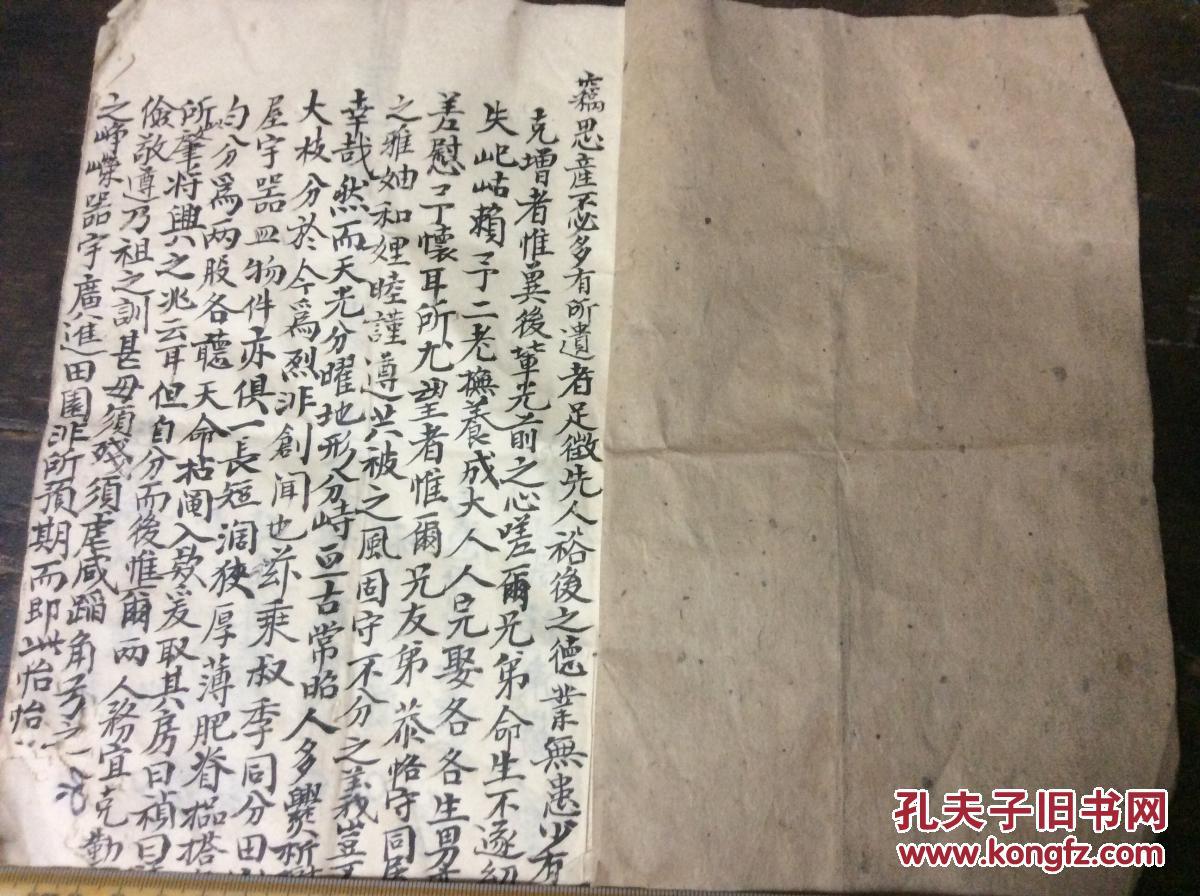 竊思產不必多有所遺者足徵先人裕後之德業無患少有
克增者惟冀後輩光前之心嗟爾兄弟命生不逐幼
失屺岵賴予二老撫養成大人人完娶各各生男
差慰予懷耳所尤望者惟爾兄友弟恭恪守同居
之雅妯和娌睦謹遵共被之風固守不分之義豈不
幸哉然而天光分曜地形分峙亘古常昭人多爨析
大枝分於今為烈非創闻也茲乘叔季同分田
屋宇器皿物件亦俱一長短濶狹厚薄肥脊品搭
均分為兩股各聽天命拈阄入爰取其房曰禎曰
所肇将興之兆云耳但自分而後惟爾兩人務宜克勤
儉敬遵乃祖之訓甚毋須殘須虐咸蹈角弓之
之峥嶸器宇廣進田園非所預期而即此怡怡
孔夫子旧书网
www.kongfz.com